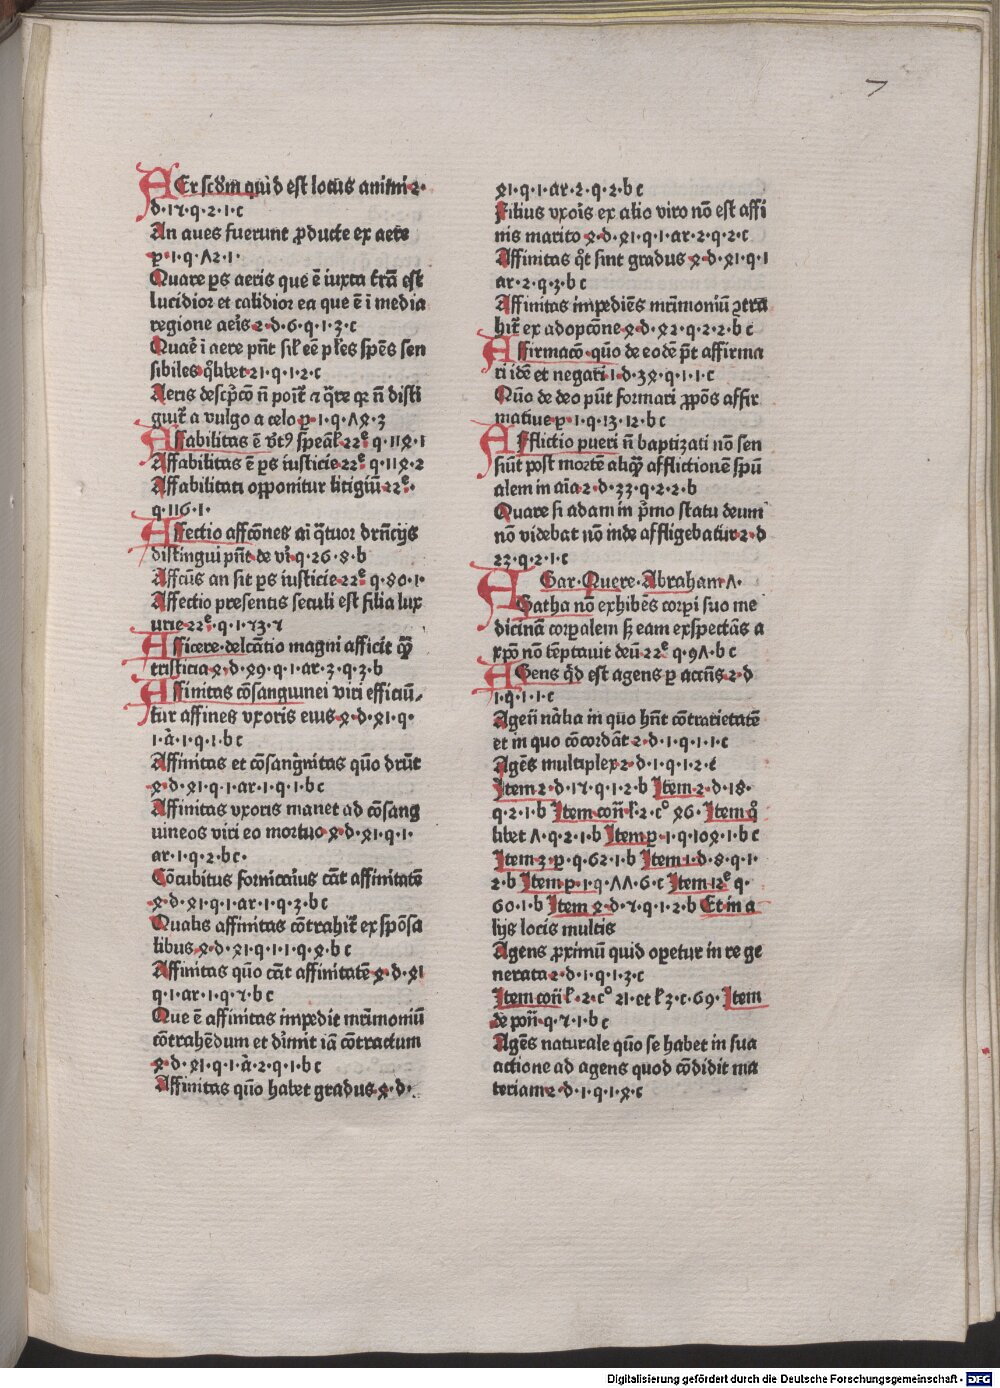 7
AEr scdm quid est locus animi 2·
d·17·q·2·1·c
An aues fuerunt ꝓducte ex aere
p·1·q·Λ2·1·
Quare ps aeris que ē iuxta trā est
lucidior et calidior ea que ē i media
regione aeris 2·d·6·q·1·3·c
Quaē i aere pn̄t sil eē ples spēs sen
sibiles qlibet 21·q·1·2·c
Aeris descpco n̄ poit ⁊ qre qr n̄ disti
guit a vulgo a celo p·1·q·Λ8·3
Affabilitas ē vt9 speal 22e q·118·1
Affabilitas ē ps iusticie 22e q·118·2
Affabilitati opponitur litigiū 22e·
q·116·1·
Affectio affcōnes ai qtuor drn̄cijs
distingui pn̄t de vi q·26·8·b
Affcus an sit ps iusticie 22e q·80·1·
Affectio presentis seculi est filia lux
urie 22e·q·1·73·7
Afficere·delcatio magni afficit qꝫ
tristicia 8·d·89·q·1·ar·3·q·3·b
Affinitas cōsanguinei viri efficiū-
tur affines vxoris eius 8·d·81·q·
1·a·1·q·1·b c
Affinitas et cōsangnitas quō drn̄t
8·d·81·q·1·ar·1·q·1·bc
Affinitas vxoris manet ad cōsang
uineos viri eo mortuo 8·d·81·q·1·
ar·1·q·2·bc·
Cōcubitus fornicarius cāt affinitatē
8·d·81·q·1·ar·1·q·3·bc
Qualis affinitas cōtrahit ex spōsa
libus 8·d·81·q·1·1·q·8·b c
Affinitas quō cāt affinitatē 8·d·81
q·1·ar·1·q·7·b c
Que ē affinitas impedit mrīmoniū
cōtrahēdum et dimit iā cōtractum
8·d·81·q·1·a·2·q·1·bc
Affinitas quō habet gradus 8·d·
81·q·1·ar·2·q·2·b c
Filius vxois ex alio viro nō est affi
nis marito 8·d·81·q·1·ar·2·q·2·c
Affinitas qt sint gradus 8·d·81·q·1
ar·2·q·3·b c
Affinitas impediēs mrīmoniū ꝯtra
hit ex adopcōne 8·d·82·q·2·2·b c
Affirmacō·quō de eodē pt affirma
ri idē et negari 1·d·38·q·1·1·c
Quō de deo pūt formari ꝓpōs affir
matiue p·1·q·13·12·b c
Afflictio pueri n̄ baptizati nō sen
siūt post mortē aliqꝫ afflictionē spūa
alem in aīa 2·d·33·q·2·2·b
Quare si adam in pmo statu deum
nō videbat nō inde affligebatur 2·d
23·q·2·1·c
AGar·Quere·Abraham Λ·
AGatha nō exhibēs corpi suo me
dicinā corpalem sꝫ eam exspectās a
xpō nō tēptauit deū 22e q·9Λ·b c
AGens qd est agens p accn̄s 2·d
1·q·1·1·c
Agen̄ nālia in quo hn̄t cōtrarietatē
et in quo cōcordāt 2·d·1·q·1·1·c
Agēs multiplex 2·d·1·q·1·2·c
Item 2·d·17·q·1·2·b Item 2·d·18·
q·2·1·b Item con̄ l·2·c° 86·Item q
libet Λ·q·2·1·b Item p·1·q·108·1·b c
Item 3·p·q·62·1·b Item 1·d·8·q·1·
2·b Item p·1·q·ΛΛ·6·c Item 12e q·
60·1·b Item 8·d·7·q·1·2·b Et in a
lijs locis multis
Agens ꝓximum quid opetur in re ge
nerata 2·d·1·q·1·3·c
Item con̄ l·2·c° 21·et l 3·c·69·Item
de pon̄·q·7·1·b c
Agēs naturale quō se habet in sua
actione ad agens quod cōdidit ma
teriam 2·d·1·q·1·8·c
Digitalisierung gefördert durch die Deutsche Forschungsgemeinschaft - DFG